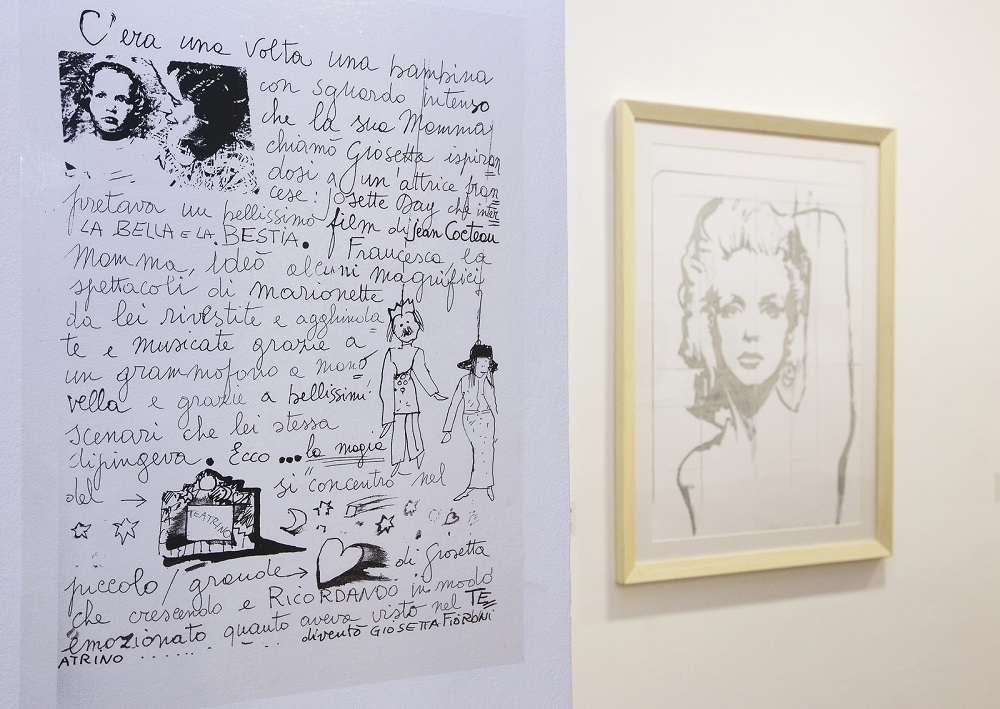 C'era una volta una bambina
con sguardo intenso
che la sua Mamma
chiamò Giosetta ispiran
dosi a un'attrice fran
cese: Josette Day che inter
pretava un bellissimo film di Jean Cocteau
LA BELLA E LA BESTIA. Francesca la
Mamma, ideò alcuni magnifici
spettacoli di marionette
da lei rivestite e agghinda
te e musicate grazie a
un grammofono a mano
vella e grazie a bellissimi
scenari che lei stessa
dipingeva. Ecco ...la magia
del → si concentrò nel
TEATRINO
piccolo/grande → di Giosetta
che crescendo e RICORDANDO in modo
emozionato quanto aveva visto nel TE
ATRINO ....... diventò GIOSETTA FIORONI